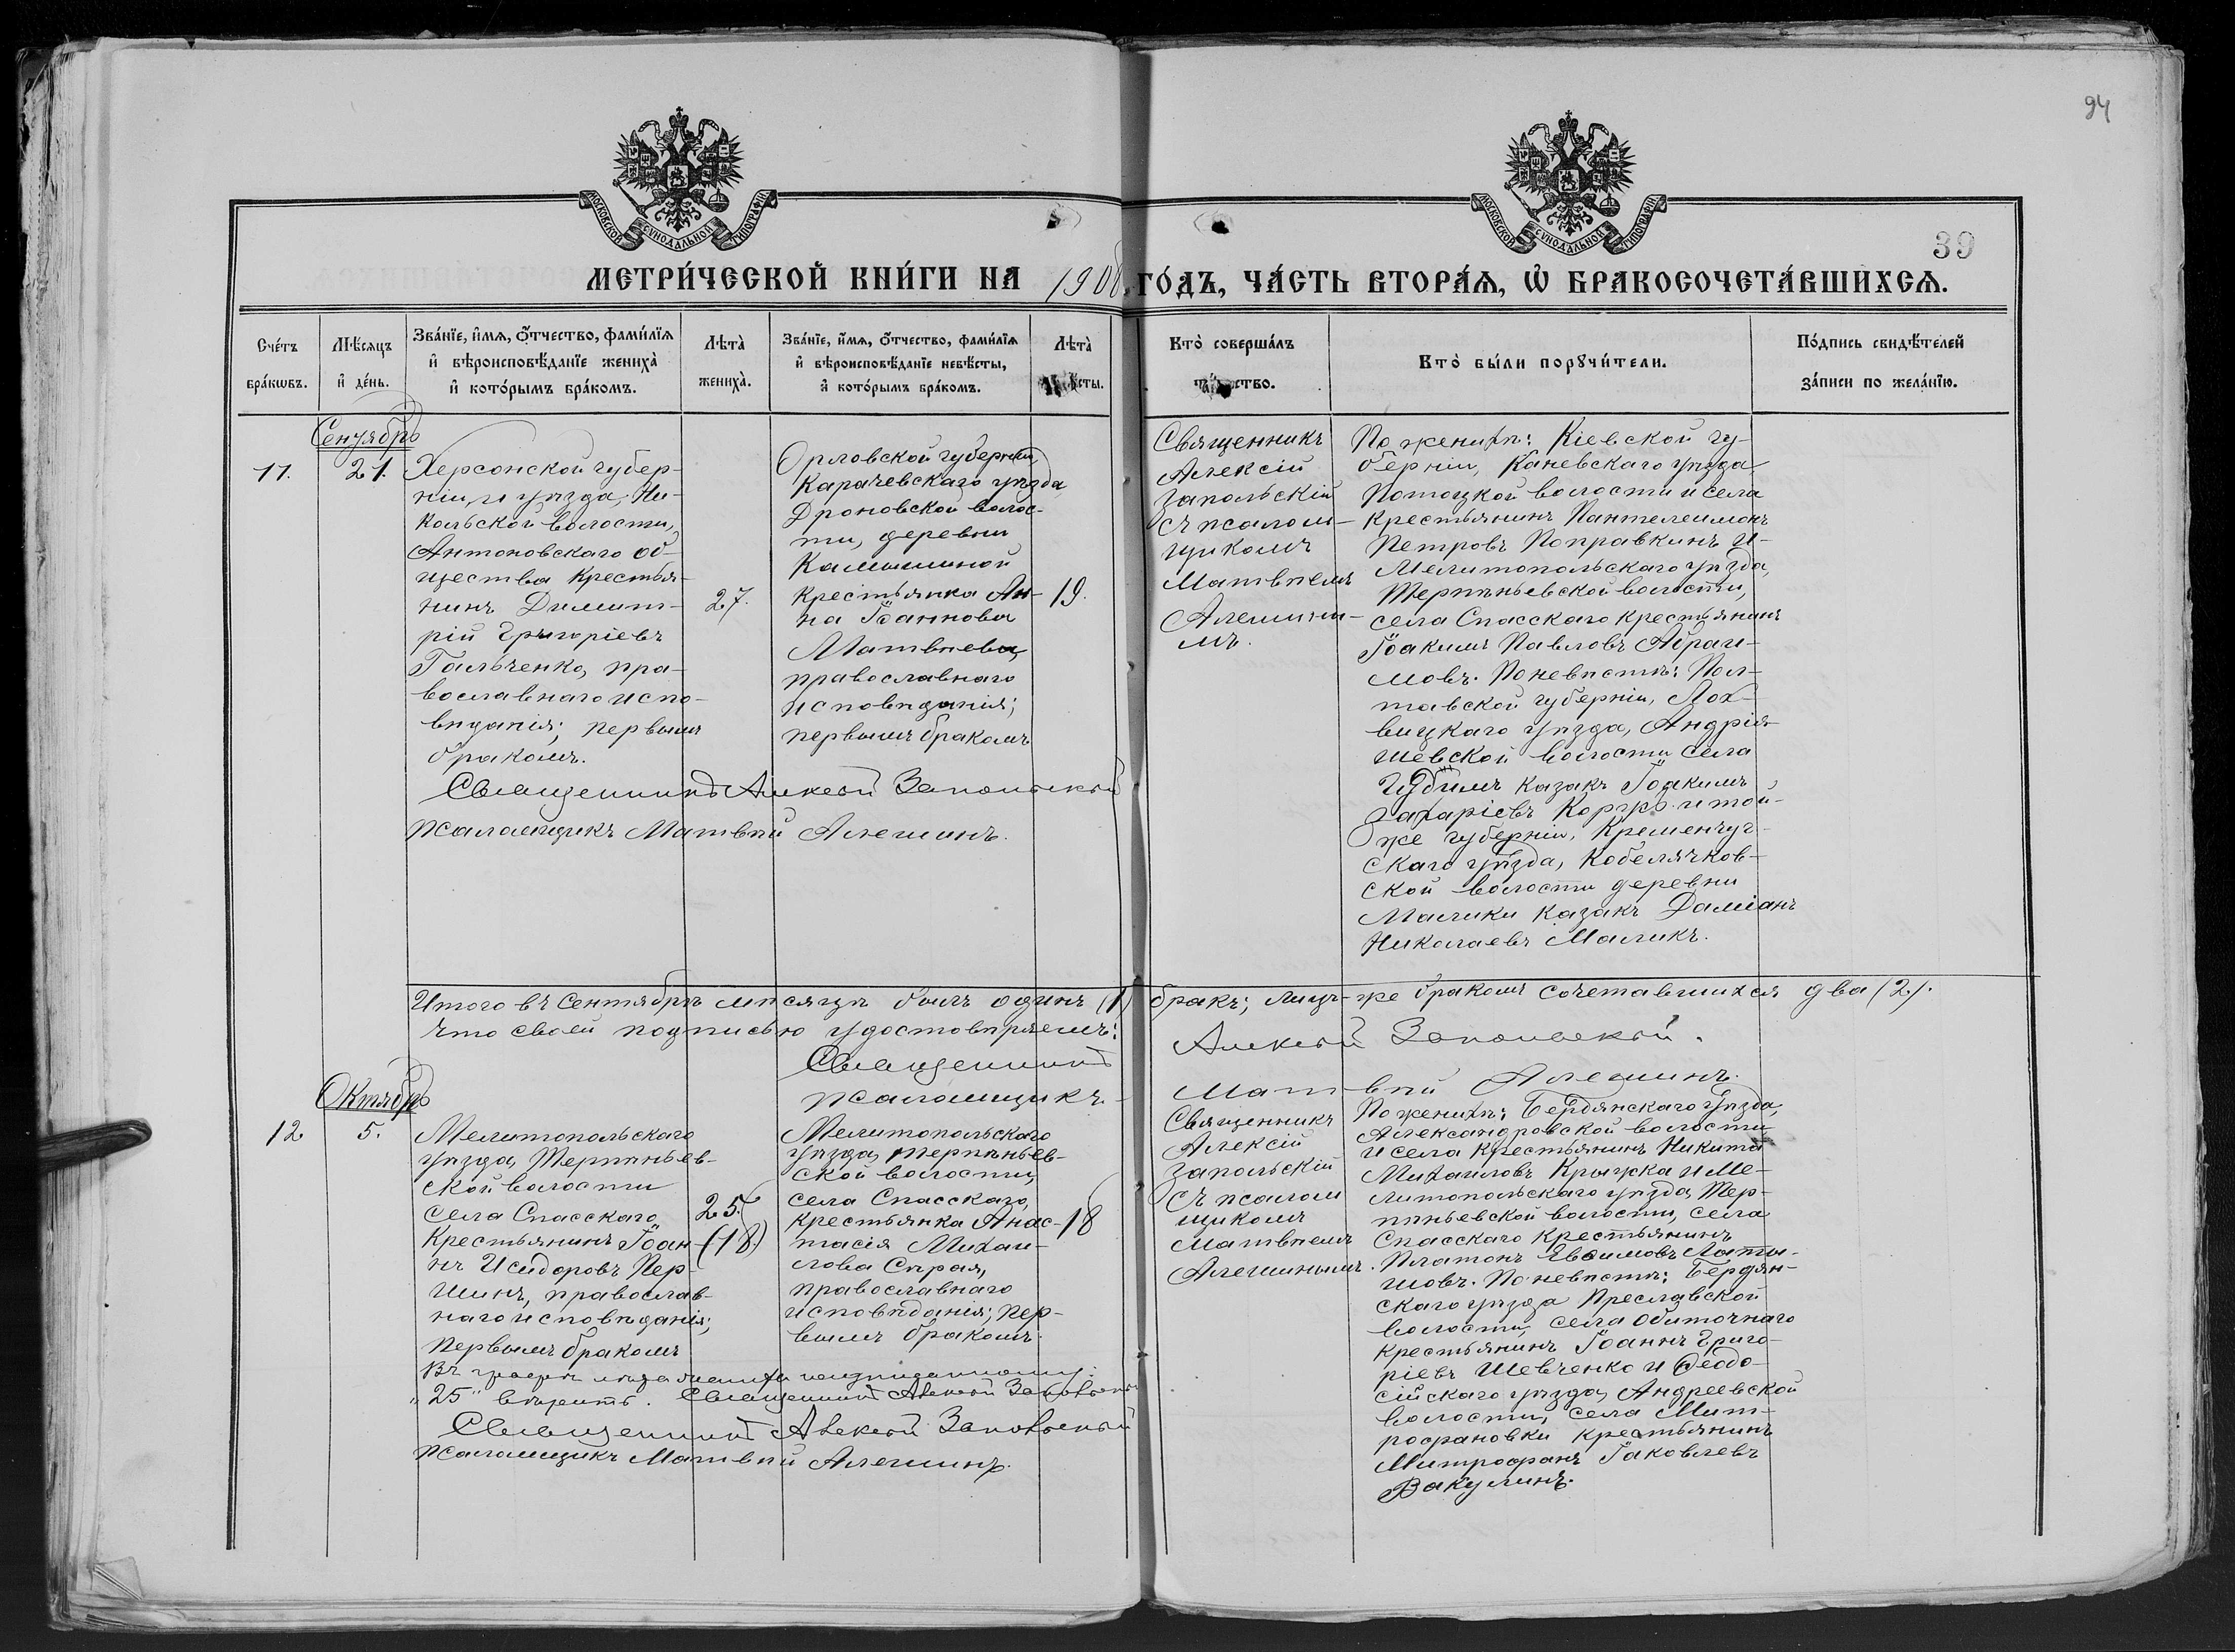 94
39
МОСКОВСКОЙ СѴНОДАЛЬНОЙ ТИПОГРАФІИ
МОСКОВСКОЙ СѴНОДАЛЬНОЙ ТИПОГРАФІИ
МЕТРИ́ЧЕСКОЙ КНИ́ГИ НА 1908 ГО́ДЪ, ЧА́СТЬ ВТОРА́Я, Ѡ҆ БРАКОСОЧЕТА́ВШИХСѦ.
Сче́тъ
бра́кѡвъ.
Мѣ́сѧцъ
и҆ де́нь.
Зва́нїе, и҆́мѧ, ѻ҆́тчество, фами́лїѧ
и҆ вѣроисповѣ́данїе жениха̀
и҆ кото́рымъ бра́комъ.
Лѣта̀
жениха̀.
Зва́нїе, и҆́мѧ, ѻ҆́тчество, фами́лїѧ
и҆ вѣроисповѣ́данїе невѣ́сты,
и҆ кото́рымъ бра́комъ.
Лѣта̀
Кто̀ соверша́лъ
Кто̀ бы́ли порꙋчи́тели.
По́дпись свидѣ́телей
за́писи по жела́нїю.
Сентябрь
11.
21.
Херсонской губер-
ніи, и уѣзда, Ни-
кольской волости,
Антоновскаго об-
щества крестья-
нинъ Димит-
рій Григоріевъ
Гальченко, пра-
вославнаго испо-
вѣданія; первымъ
бракомъ.
27.
Орловской губерніи,
Карачевскаго уѣзда,
Дроновской волос-
ти, деревни
Камышиной
крестьянка Ан-
на Іоаннова
Матвѣева,
православнаго
исповѣданія;
первымъ бракомъ
19.
Священникъ
Алексій
Запольскій
съ псалом-
щикомъ
Матвѣемъ
Алешины-
мъ.
По женихѣ: Кіевской гу-
берніи, Каневскаго уѣзда
Потоцкой волости и села
крестьянинъ Пантелеимонъ
Петровъ Поправкинъ и-
Мелитопольскаго уѣзда,
Терпѣньевской волости,
села Спасскаго крестьянинъ
Іоакимъ Павловъ Абраи-
мовъ. По невѣстѣ: Пол-
тавской губерніи, Лох-
вицкаго уѣзда, Андрія-
шевской волости села
казакъ Іоакимъ
Захаріевъ и той-
же губерніи, Кременчуг-
скаго уѣзда, Кобелячков-
ской волости деревни
Малики казакъ Даміанъ
Николаевъ Маликъ.
Священникъ Алексій Запольскій
Псаломщикъ Матвѣй Алешинъ.
Итого въ Сентябрѣ мѣсяцѣ былъ одинъ (1) бракъ; лицъ-же бракомъ сочетавшихся два (2).
что своей подписью удостовѣряемъ:
Священникъ Алексій Запольскій.
псаломщикъ- Матвѣй Алешинъ.
Октябрь
12
5.
Мелитопольскаго
уѣзда, Терпѣньев-
ской волости
села Спасскаго
крестьянинъ Іоан-
нъ Исидоровъ Пер-
шинъ, православ-
наго исповѣданія;
первымъ бракомъ
25.
(18.)
Мелитопольскаго
уѣзда, Терпѣньев-
ской волости,
села Спасскаго,
крестьянка Анас-
тасія Михаи-
лова Сѣрая,
православнаго
исповѣданія; пер-
вымъ бракомъ.
18
Священникъ
Алексій
Запольскій
съ псалом
щикомъ
Матвѣемъ
Алешинымъ.
По женихѣ: Бердянскаго уѣзда,
Александровской волости
и села крестьянинъ Никита
Михаиловъ и Ме-
литопольскаго уѣзда, Тер-
пѣньевской волости, села
Спасскаго крестьянинъ
Платонъ Евѳимовъ Латы-
шовъ. По невѣстѣ: Бердян-
скаго уѣзда Преславской
волости, села Обиточнаго
крестьянинъ Іоаннъ Григо-
ріевъ Шевченко и Ѳеодо-
сійскаго уѣзда, Андреевской
волости, села Мит-
рофановки крестьянинъ
Митрофанъ Іаковлевъ
Вакулинъ.
Въ графѣ лѣта жениха написанному:
„25" вѣрить. Священникъ Алексій Запольскій
Священникъ Алексій Запольскій
Псаломщикъ Матвѣй Алешинъ.